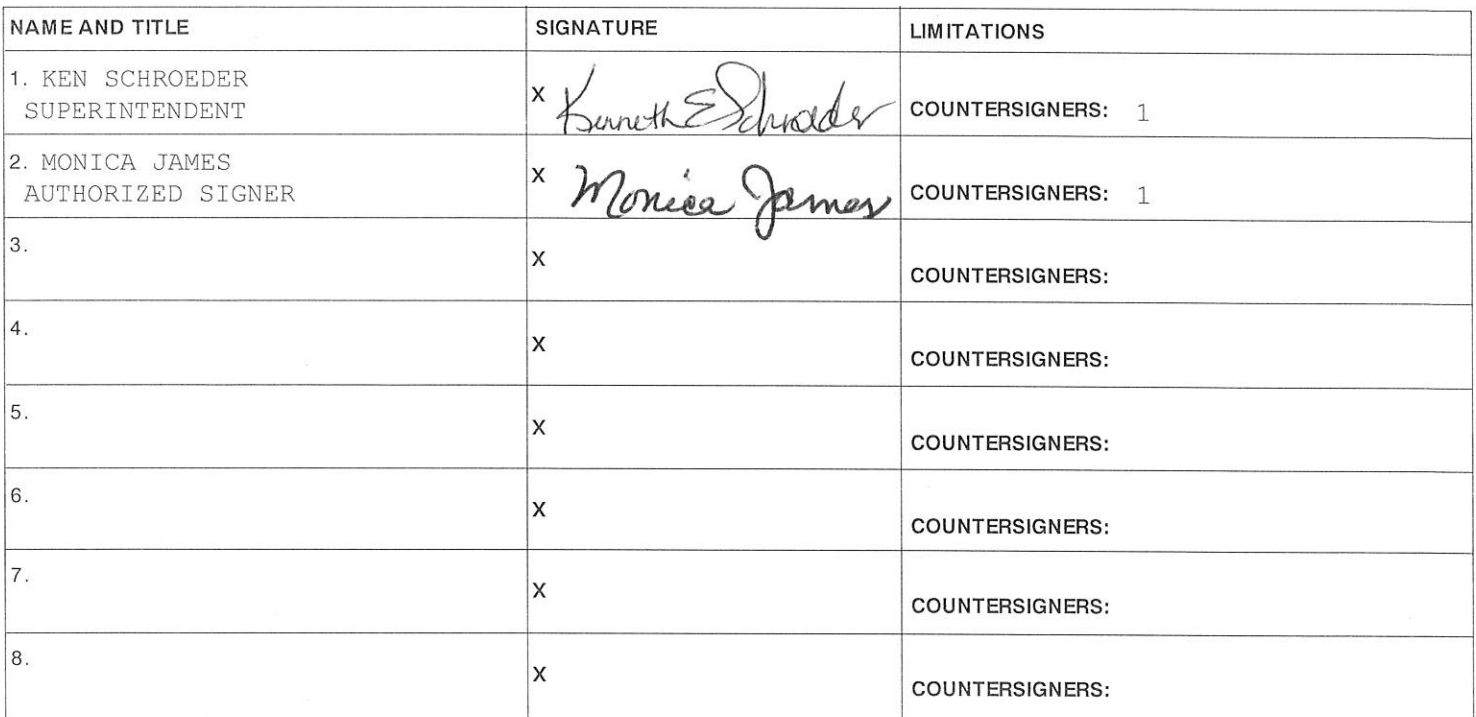 NAME AND TITLE SIGNATURE LIMITATIONS
1. KEN SCHROEDER
SUPERINTENDENT
X Kenneth E Schroeder COUNTERSIGNERS: 1
2. MONICA JAMES
AUTHORIZED SIGNER
X Monica James COUNTERSIGNERS: 1
3.
X COUNTERSIGNERS:
4.
X COUNTERSIGNERS:
5.
X COUNTERSIGNERS:
6.
X COUNTERSIGNERS:
7.
X COUNTERSIGNERS:
8.
X COUNTERSIGNERS: